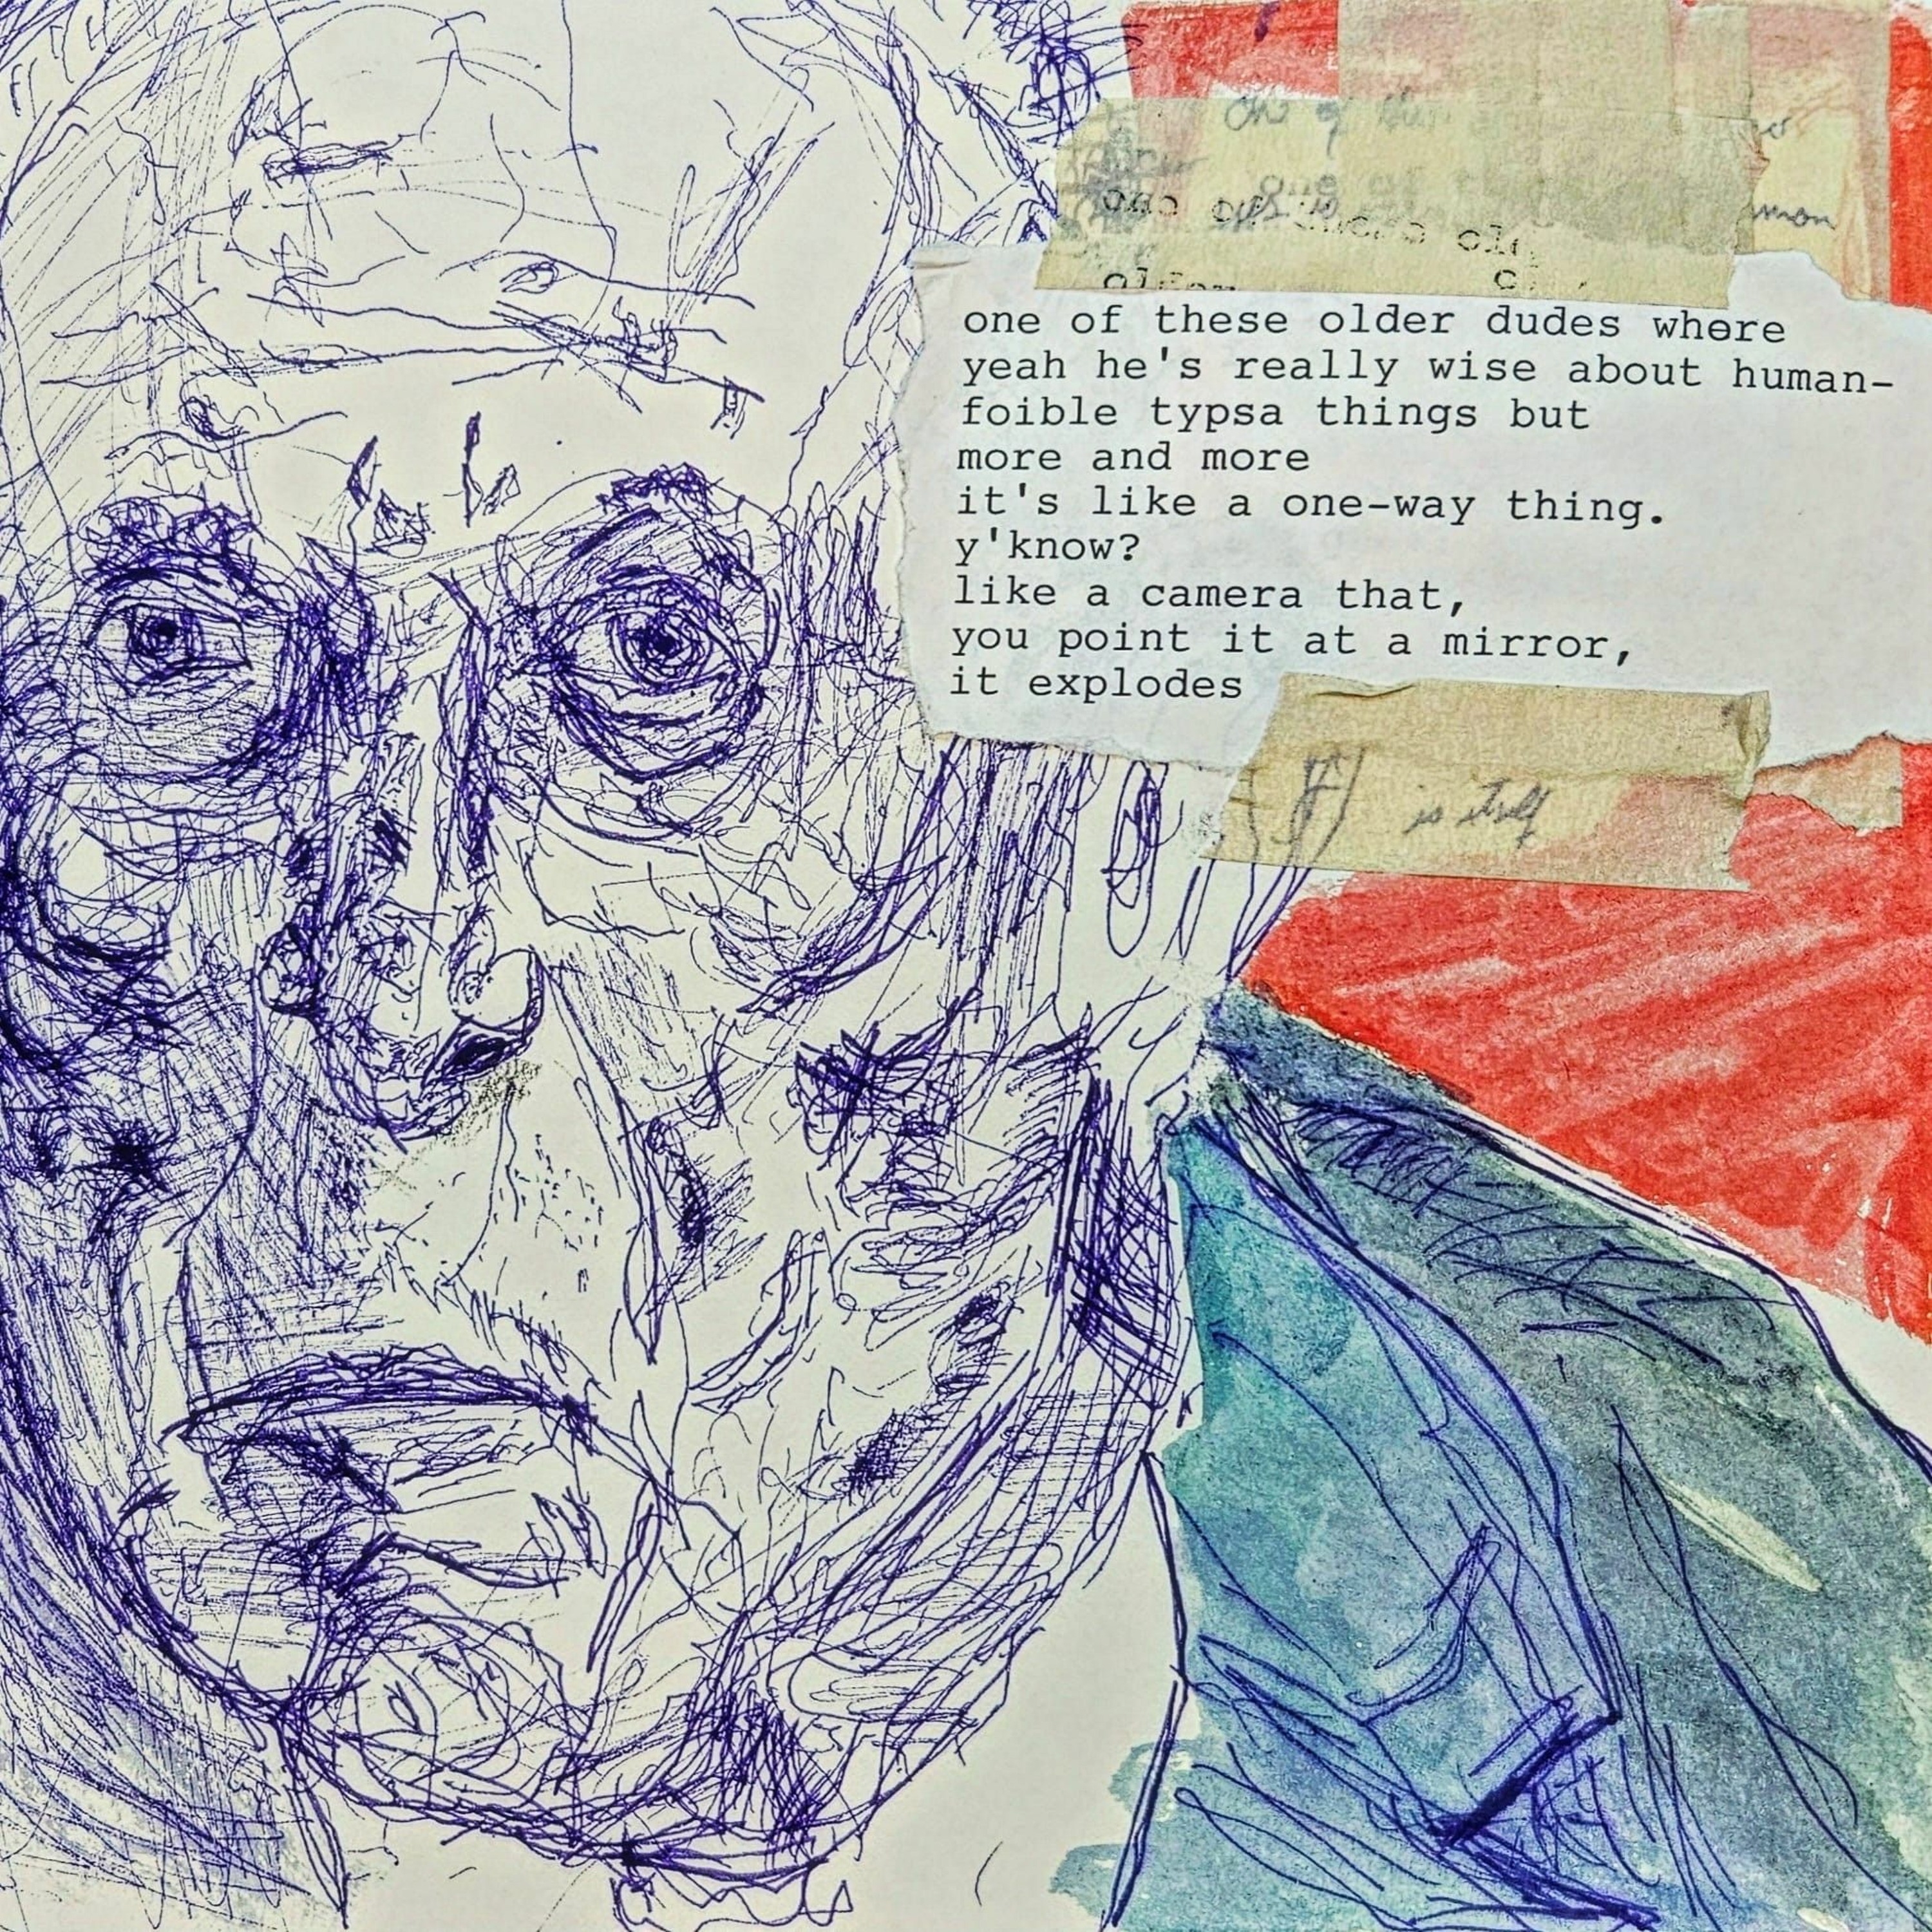 one of
one of
one of these older dudes where
yeah he's really wise about human-
foible typsa things but
more and more
it's like a one-way thing.
y'know?
like a camera that,
you point it at a mirror,
it explodes
is itself